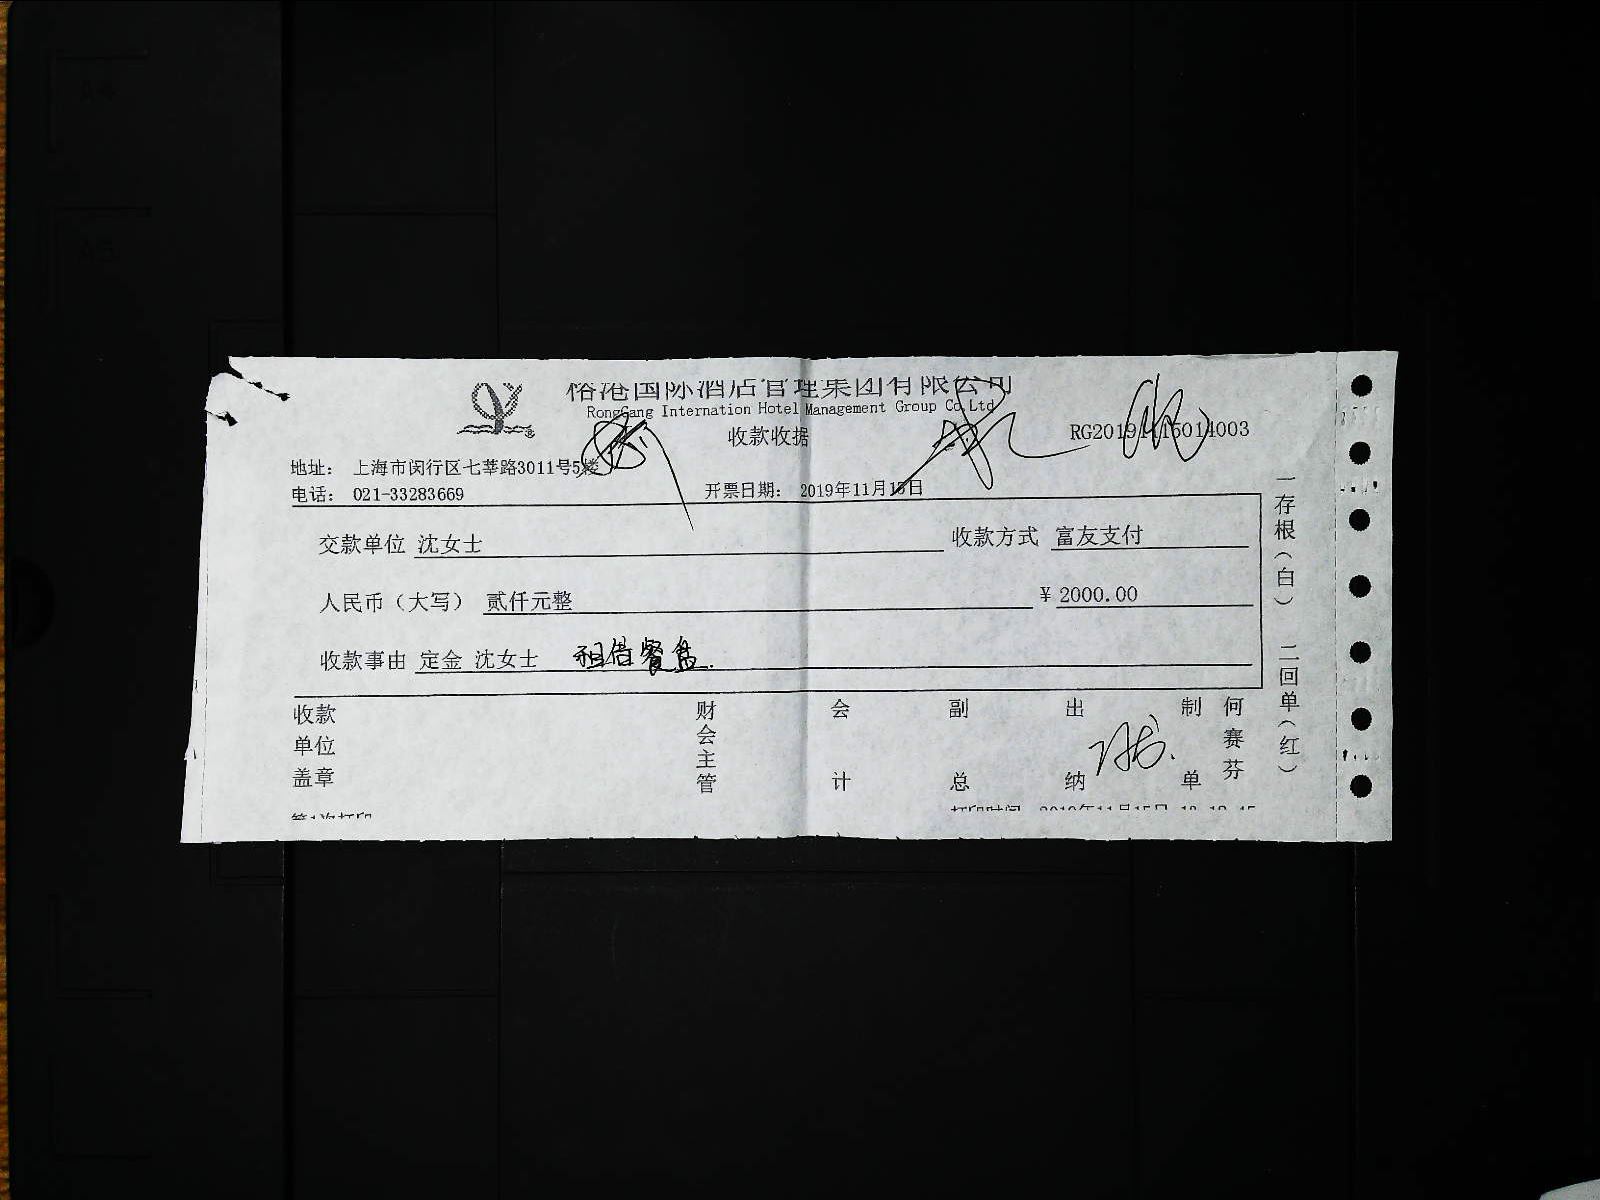 裕港国际酒店管理集团有限公司
RongGang Internation Hotel Management Group Co,Ltd
收款收据
RG20191115014003
地址： 上海市闵行区七莘路3011号5楼
电话： 021-33283669 开票日期： 2019年11月15日
交款单位 沈女士 收款方式 富友支付
人民币（大写） 贰仟元整 ￥2000.00
收款事由 定金 沈女士 租借餐盘.
收款单位盖章 财会主管 会计 副总 出纳 制单 何赛芬
第1次打印 打印时间 2019年11月15日
一存根（白） 二回单（红）
A4
A5